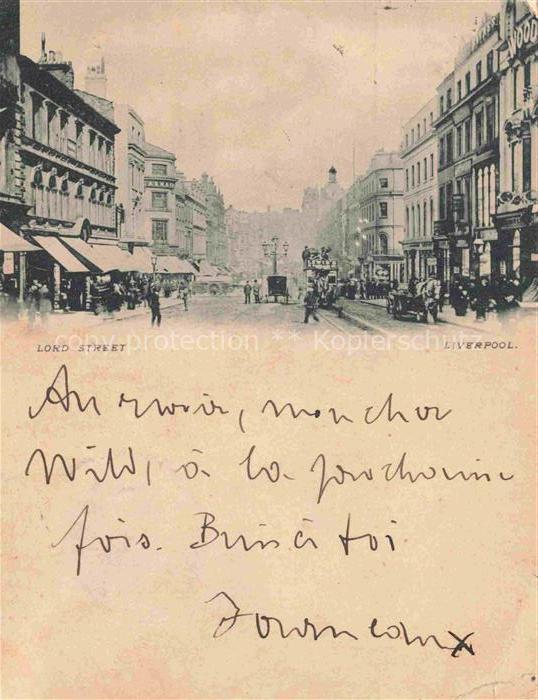 WOOD
LORD STREET
LIVERPOOL.
copy protection ** Kopierschutz
Au revoir, mon cher
Wild, à la prochaine
fois. Bien à toi